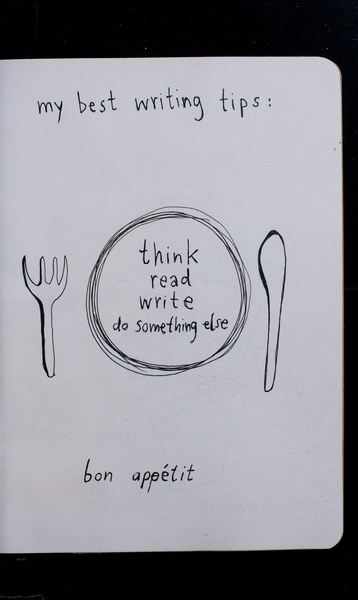 my best writing tips:
think
read
write
do something else
bon appétit